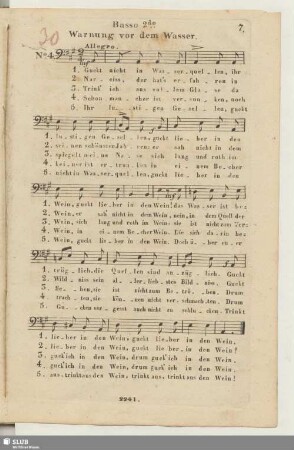 Basso 2do
7.
Warnung vor dem Wasser.
90
No 4.
Allegro.
mf
1. Guckt nicht in Was_ser_quel_len, ihr
2. Nar_ziss, der hat's er_fah_ren in
3. Trinkt ich aus Gla_se da
4. Schon man_cher ist ver_sun_ken, noch
5. Ihr lu_sti_gen Ge_sel_len, guckt
1. lu_sti_gen Ge_sel_len, guckt lie_ber in den
2. sei_nen schönsten Jah_ren: er sah nicht in den
3. spiegelt mei_ne Na_se sich lang und roth im
4. kei_ner ist er_trun_ken in ei_nem Be_
5. nicht in Was_ser_quel_len, guckt lie_ber in den
1. Wein, guckt lie_ber in den Wein! das Was_ser ist be_
2. Wein, er sah nicht in den Wein, nein, in den Quell der
3. Wein, sich lang und roth im Wein: sie ist nicht zum
4. Wein, in ei_nem Be_cher Wein. Die sich da_rin
5. Wein, guckt lie_ber in den Wein. Doch ü_ber
1. trüg_lich, die Quel_len sind an_züg_lich. Guckt
2. Wild_niss sein al_ler_lieb_stes Bild_niss. Guckt
3. ist zum Be_trü_ben. Drum
4. kön_nen nicht ver_schmach_ten. Drum
5. Gu_cken ver_gesst auch nicht zu schlu_cken. Trinkt
1. lie_ber in den Wein, guckt lie_ber in den Wein,
2. lie_ber in den Wein, guckt lie_ber in den Wein!
3. guck' ich in den Wein, drum guck' ich in den Wein.
4. guck' ich in den Wein, drum guck' ich in den Wein.
5. aus, trinkt aus den Wein, trinkt aus, trinkt aus den Wein!
2941.
SLUB